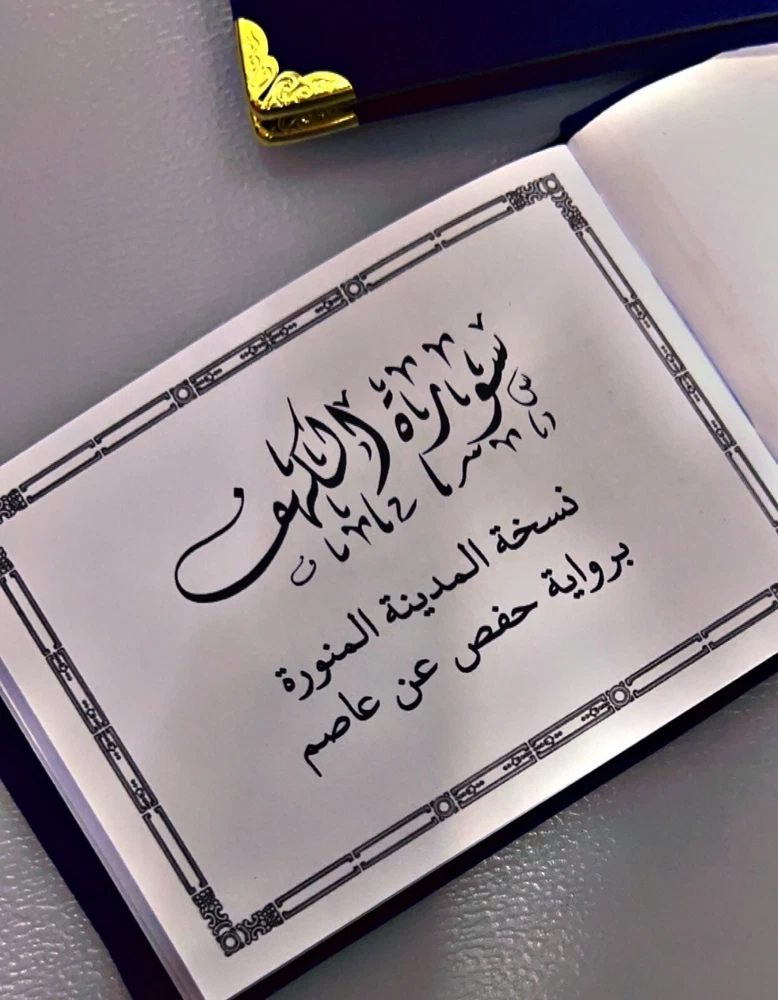 سورة الكهف
نسخة المدينة المنورة
برواية حفص عن عاصم